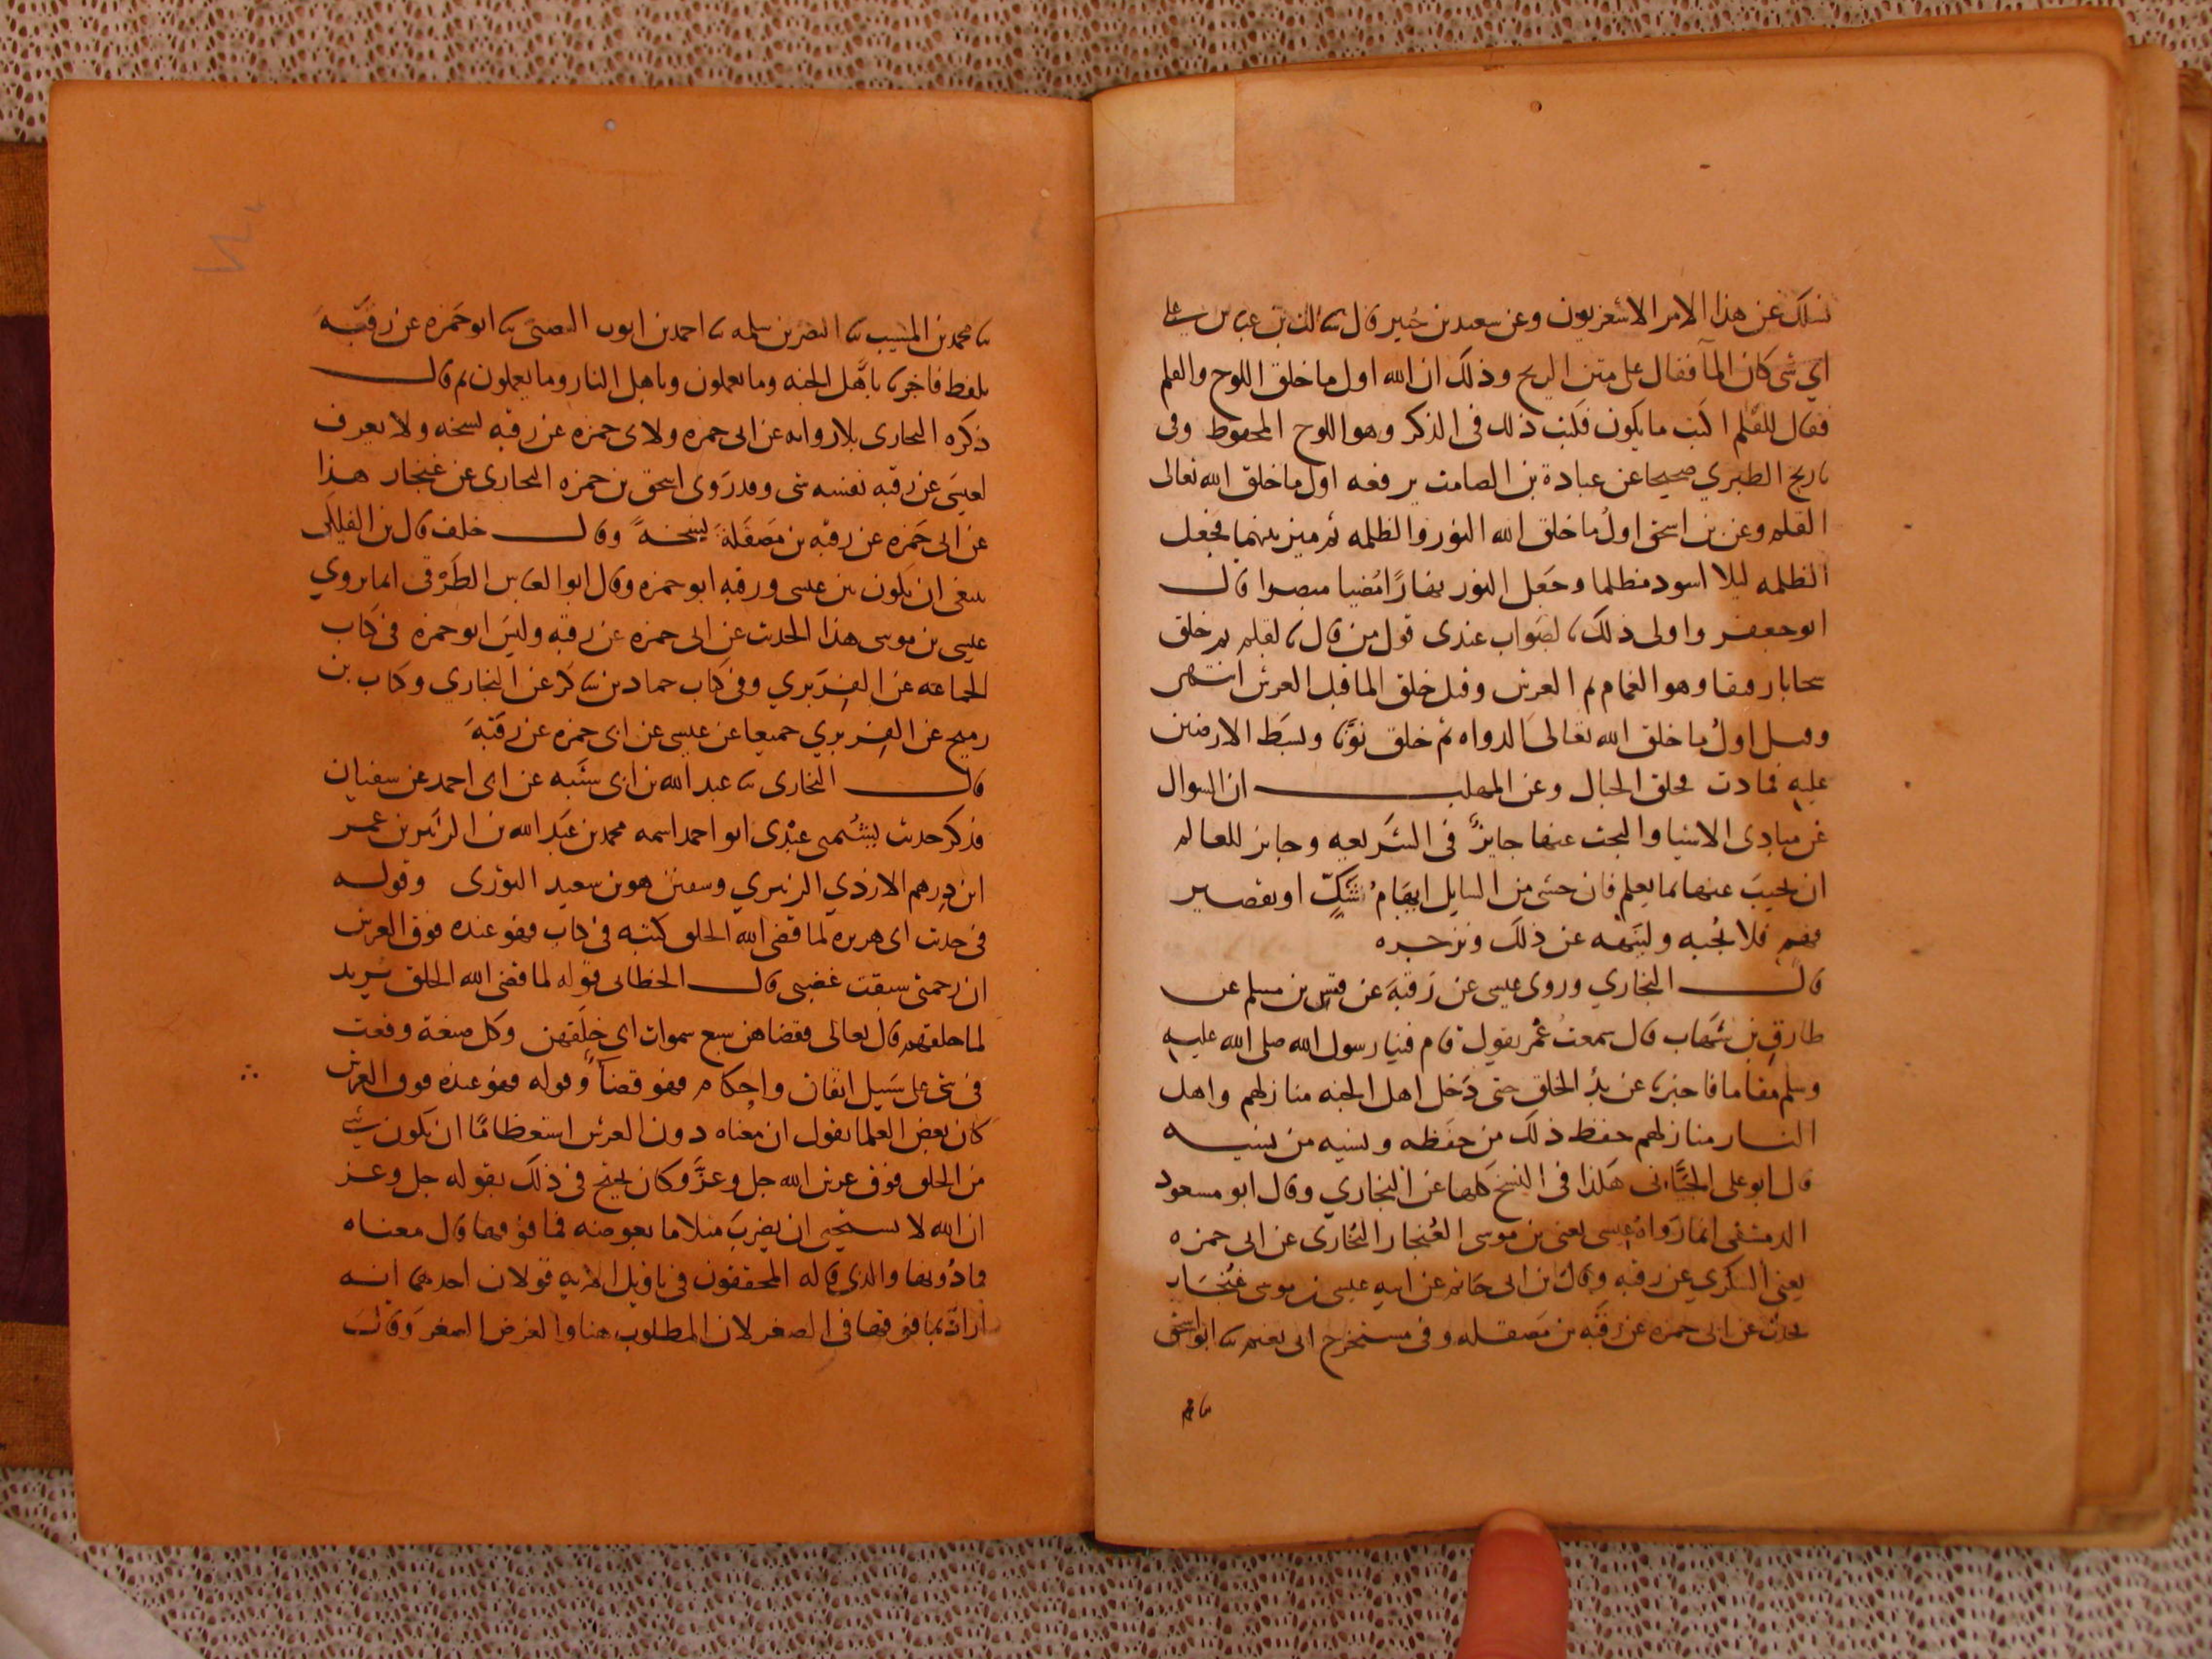 نسلك عن هذا الامر الاشعريون وعن سعيد بن جبير قال سالت بن عباس على
اي شي كان المآ فقال على متن الريح وذلك ان الله اول ما خلق اللوح والقلم
فقال للقلم اكتب ما يكون فكتب ذلك في الذكر وهو اللوح المحفوظ وفي
تاريخ الطبري صحيحا عن عبادة بن الصامت يرفعه اول ما خلق الله تعالى
القلم وعن بن اسحق اول ما خلق الله النور والظلمه ثم ميز بينهما فجعل
الظلمه ليلا اسود مظلما وجعل النور نهارًا مُضيا مبصرا قال
ابو جعفر واولى ذلك بالصواب عندى قول من قال القلم ثم خلق
سحابا رقيقا وهو الغمام ثم العرش وقيل خلق الما قبل العرش انتهى
وقيل اولُ ما خلق الله تعالى الدواه ثم خلق نونًا وبسَط الارضين
عليه فمادت فخلق الجبال وعن المهلب ان السوال
عن مبادى الاشيا والبحث عنها جايزٌ في الشريعه وجايز للعالم
ان يجيبَ عنها بما يعلم فان خشى من السايل ايهَام شكٍّ او تقصير
فهم فلا يُجبه ولينهه عن ذلك ويزجره
قال البخاري وروى عيسى عن رَقبَة عن قيس بن مسلم عن
طارق بن شهاب قال سمعتُ عُمر يقول قام فينا رسول الله صلى الله عليه
وسلم مقاما فاخبرنا عن بدْ الخلق حتى دَخل اهل الجنه منازلهم واهل
النار منازلهم حفظ ذلك من حفظه ونسيه من نسيه
قال ابو على الجيَّانى هكذا في النسخ كلها عن البخاري وقال ابو مسعود
الدمشقى انما رَواهُ عيسى يعنى بن موسى الغُنجار البُخارى عن ابى حمزه
يعني السكري عن رقبه وقال بن ابى حَاتم عن ابيه عيسى بن موسى غُنجَار
يحدث عن ابى حمزه عن رقبه بن مَصقله وفي مستخرج ابى نعيم ثنا ابو اسحق
ثنا محمد بن المسيب ثنا النضر بن سلمه ثنا احمد بن ايوب الضبى ثنا ابو حَمزه عن رقبَه
بلفظ فاخبرنا باهْل الجنه وما يعملون وباهل النار وما يعملون ثم قال
ذكره البخارى بلا روايه عن ابى حمزه ولابى حمزه عن رقبه نسخه ولا يعرف
لعيسَى عن رقبه نفسه شى وقد رَوى اسحق بن حمزه البخارى عن غنجار هذا
عن ابى حَمزه عن رقبه بن مَصقَلة نسخةً وقال خلف قال بن الفلكى
ينبغى ان يكون بين عيسى ورقبه ابو حمزه وقال ابو العباس الطَرْقى انما يروي
عيسى بن موسى هذا الحديث عن ابى حمزه عن رقبه وليسَ ابو حمزه في كتاب
الجماعه عن الفِرَبري وفي كتاب حماد بن شاكر عن البخاري وكتاب بن
رميح عن الفِرَبري جميعا عن عيسى عن ابى حمزه عن رقبَة
قال البخارى ثنا عبد الله بن ابى شيبه عن ابى احمد عن سفيان
فذكر حديث يشتمنى عبْدى ابو احمد اسمه محمد بن عبَد الله بن الزبَير بن عمر
ابن دِرهم الازدي الزبيري وسفين هو بن سعيد الثورى وقوله
في حديث ابى هريره لما قضى الله الخلق كتبه في كتاب فهو عنده فوق العرش
ان رحمتى سبقت غضبى قال الخطابى قوله لما قضى الله الخلق يريد
لما خلقهم قال تعالى فقضاهن سبع سموات اى خلقهن وكل صنعة وقعت
في شى على سَبيل اتقان واحكام فهو قضآ وقوله فهو عنده فوق العرش
كان بعض العلما يقول ان معْناه دون العرش استعظامًا ان يكون شي
من الخلق فوق عرش الله جل وعزَّ وكان يحتج في ذلك بقوله جل وعز
ان الله لا يستحيى ان يضربَ مثلا ما بعوضه فما فوقها قال معناه
فما دُونها والذى قاله المحققون في تاويل الايه قولان احدهما انه
ارادَ بما فوقها في الصغر لان المطلوب هنا والغرض الصغر وَقالت
ثنا محمد